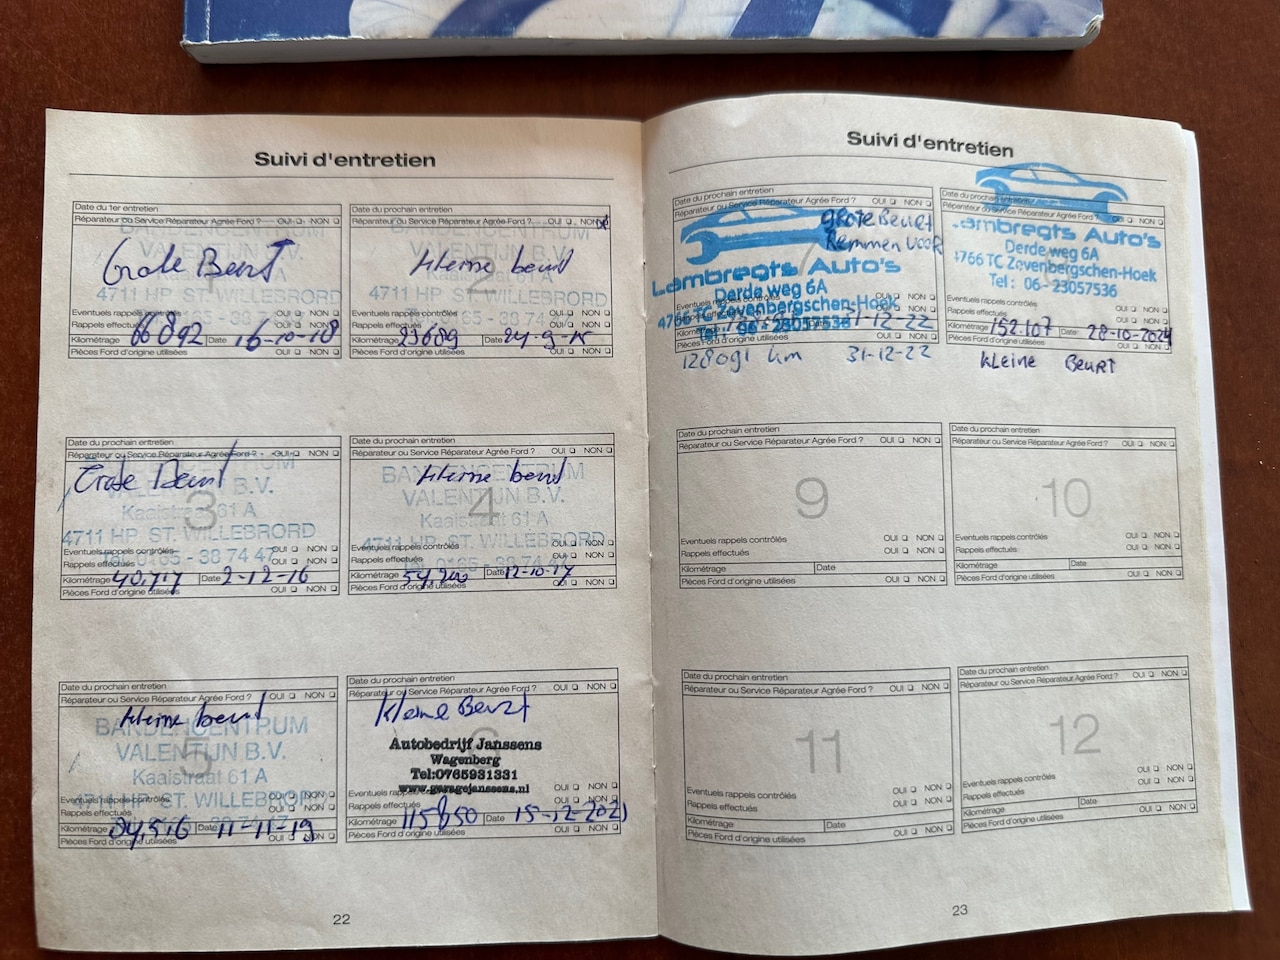 Suivi d'entretien
Date du 1er entretien
Réparateur ou Service Réparateur Agrée Ford ? OUI NON
BANDENCENTRUM
VALENTIJN B.V.
Grote Beurt
4711 HP ST. WILLEBRORD
Eventuels rappels contrôlés OUI NON
Rappels effectués OUI NON
Kilométrage 66892 Date 16-10-18
Pièces Ford d'origine utilisées OUI NON
Date du prochain entretien
Réparateur ou Service Réparateur Agrée Ford ? OUI NON
BANDENCENTRUM
VALENTIJN B.V.
2
kleine beurt
4711 HP ST. WILLEBRORD
Eventuels rappels contrôlés OUI NON
Rappels effectués OUI NON
Kilométrage 23689 Date 24-9-15
Pièces Ford d'origine utilisées OUI NON
Date du prochain entretien
Réparateur ou Service Réparateur Agrée Ford ? OUI NON
Grote Beurt
VALENTIJN B.V.
3
Kaaistraat 61 A
4711 HP ST. WILLEBRORD
Tel. 0165 - 38 74 47
Eventuels rappels contrôlés OUI NON
Rappels effectués OUI NON
Kilométrage 40.717 Date 2-12-16
Pièces Ford d'origine utilisées OUI NON
Date du prochain entretien
Réparateur ou Service Réparateur Agrée Ford ? OUI NON
BANDENCENTRUM
kleine beurt
VALENTIJN B.V.
4
Kaaistraat 61 A
4711 HP ST. WILLEBRORD
Tel. 0165 - 38 74 47
Eventuels rappels contrôlés OUI NON
Rappels effectués OUI NON
Kilométrage Date 12-10-17
Pièces Ford d'origine utilisées OUI NON
Date du prochain entretien
Réparateur ou Service Réparateur Agrée Ford ? OUI NON
kleine beurt
BANDENCENTRUM
VALENTIJN B.V.
5
Kaaistraat 61 A
4711 HP ST. WILLEBRORD
Eventuels rappels contrôlés OUI NON
Rappels effectués OUI NON
Kilométrage 94,516 Date 11-11-19
Pièces Ford d'origine utilisées OUI NON
Date du prochain entretien
Réparateur ou Service Réparateur Agrée Ford ? OUI NON
kleine Beurt
6
Autobedrijf Janssens
Wagenberg
Tel:0765931331
www.garagejanssens.nl
Eventuels rappels contrôlés OUI NON
Rappels effectués OUI NON
Kilométrage 115850 Date 15-12-2021
Pièces Ford d'origine utilisées OUI NON
22
Suivi d'entretien
Date du prochain entretien
Réparateur ou Service Réparateur Agrée Ford ? OUI NON
Grote Beurt
Remmen voor
7
Lambregts Auto's
Derde weg 6A
4766 TC Zevenbergschen-Hoek
Tel : 06 - 23057536
Eventuels rappels contrôlés OUI NON
Rappels effectués OUI NON
Kilométrage 31-12-22
Pièces Ford d'origine utilisées OUI NON
128091 km 31-12-22
Date du prochain entretien
OUI NON
Lambregts Auto's
Derde weg 6A
4766 TC Zevenbergschen-Hoek
Tel : 06 - 23057536
Eventuels rappels contrôlés OUI NON
Rappels effectués OUI NON
Kilométrage 152.107 Date 28-10-2024
Pièces Ford d'origine utilisées OUI NON
kleine Beurt
Date du prochain entretien
Réparateur ou Service Réparateur Agrée Ford ? OUI NON
9
Eventuels rappels contrôlés OUI NON
Rappels effectués OUI NON
Kilométrage Date
Pièces Ford d'origine utilisées OUI NON
Date du prochain entretien
Réparateur ou Service Réparateur Agrée Ford ? OUI NON
10
Eventuels rappels contrôlés OUI NON
Rappels effectués OUI NON
Kilométrage Date
Pièces Ford d'origine utilisées OUI NON
Date du prochain entretien
Réparateur ou Service Réparateur Agrée Ford ? OUI NON
11
Eventuels rappels contrôlés OUI NON
Rappels effectués OUI NON
Kilométrage Date
Pièces Ford d'origine utilisées OUI NON
Date du prochain entretien
Réparateur ou Service Réparateur Agrée Ford ? OUI NON
12
Eventuels rappels contrôlés OUI NON
Rappels effectués OUI NON
Kilométrage Date
Pièces Ford d'origine utilisées OUI NON
23